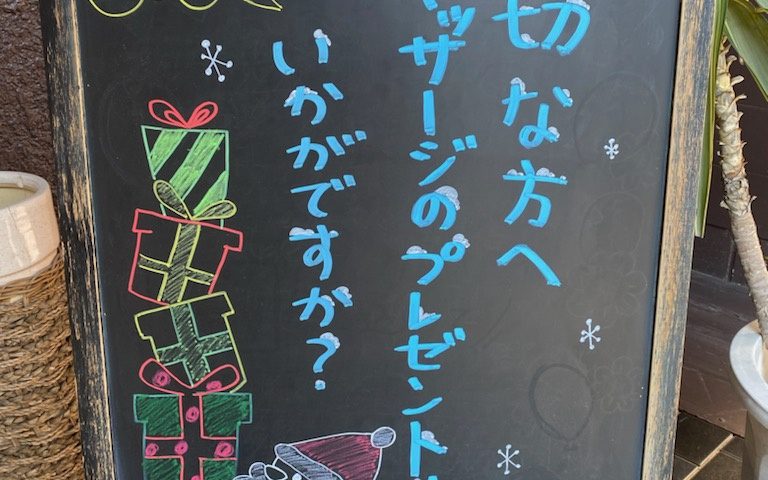 切な方へ
ッサージのプレゼント
いかがですか?